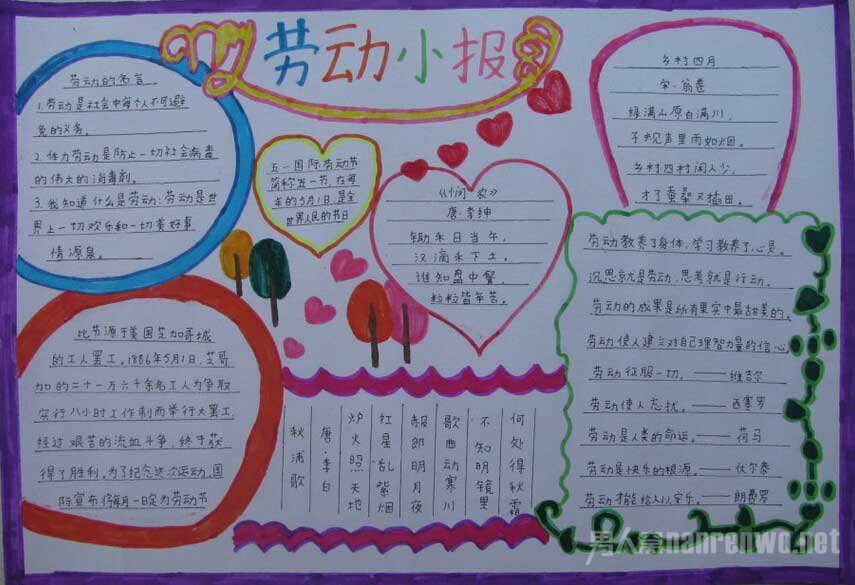 劳动小报
劳动的名言
1.劳动是社会中每个人不可避
免的义务。
2.体力劳动是防止一切社会病毒
的伟大的消毒剂。
3.我知道什么是劳动:劳动是世
界上一切欢乐和一切美好事
情源泉。
五一国际劳动节
简称五一节,在每
年的5月1日,是全
世界人民的节日
《悯农》
唐·李绅
锄禾日当午,
汗滴禾下土。
谁知盘中餐,
粒粒皆辛苦。
乡村四月
宋·翁卷
绿满山原白满川,
子规声里雨如烟。
乡村四月闲人少,
才了蚕桑又插田。
比节源于美国芝加哥城
的工人罢工。1886年5月1日,芝哥
加的二十一万六千余名工人为争取
实行八小时工作制而举行大罢工,
经过艰苦的流血斗争,终于获
得了胜利。为了纪念这次运动,国
际宣布将每月一日定为劳动节
秋浦歌
唐·李白
炉火照天地
红星乱紫烟
赧郎明月夜
歌曲动寒川
不知明镜里
何处得秋霜
劳动教养了身体,学习教养了心灵。
沉思就是劳动,思考就是行动。
劳动的成果是所有果实中最甜美的。
劳动使人建立对自己理智力量的信心
劳动征服一切。——维吉尔
劳动使人忘忧。——西塞罗
劳动是人类的命运。——荷马
劳动是快乐的根源。——伏尔泰
劳动才能给人以安乐。——朗费罗
男人窝nanrenwo.net